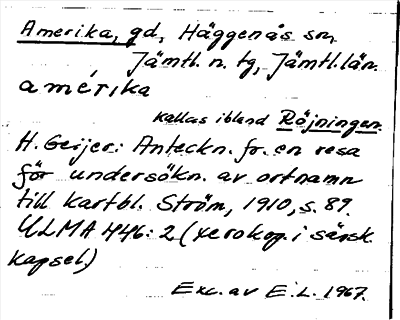 Amerika, gd, Häggenås sn,
Jämtl. n. tg, Jämtl. län.
amérika
Kallas ibland Röjningen.
H. Geijer: Anteckn. fr. en resa
för undersökn. av ortnamn
till kartbl. Ström, 1910, s. 89.
ULMA 446:2 (xerokop. i särsk.
kapsel)
Exc. av E.L. 1967.